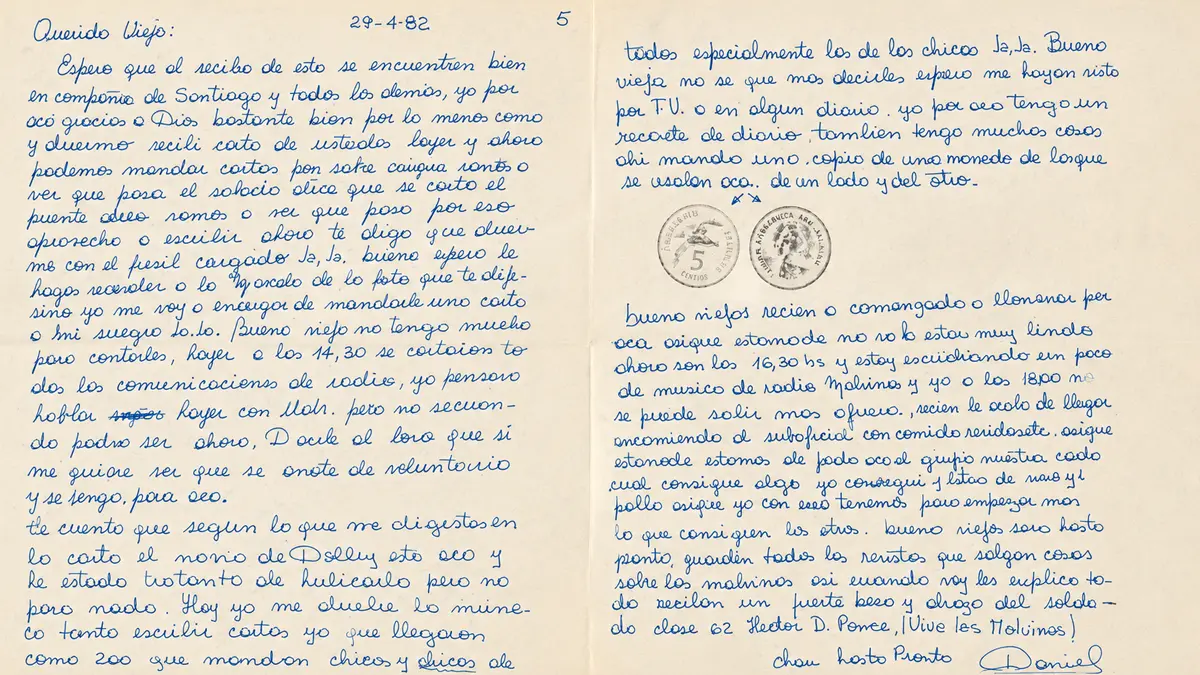 29-4-82
5
Querido Viejo:
Espero que al recibo de esto se encuentren bien
en compañia de Santiago y todos los demas, yo por
acá gracias a Dios bastante bien por lo menos como
y duermo recibi carta de ustedes hayer y ahora
podemos mandar cartas por sobre
ver que pasa el que se corto el
puente aereo vamos a ver que pasa por eso
aprovecho a escribir ahora te digo que duer-
mo con el fusil cargado Ja, Ja. bueno espero le
hagas recordar a lo de la foto que te dije
sino yo me voy a encargar de mandarle una carta
a mi suegro Ja.Ja. Bueno viejo no tengo mucho
para contarles, hayer a las 14,30 se cortaron to
das las comunicaciones de radio, yo pensaba
hablar hayer con Udr. pero no se cuan-
do podra ser ahora, Decile al loro que si
me quiere ver que se anote de voluntario
y se venga, para aca.
te cuento que segun lo que me digistes en
la carta el novio de Dolly esta aca y
he estado tratanto de hubicarlo pero no
paro nada. Hoy ya me duele la muñe-
ca tanto escribir cartas ya que llegaron
como 200 que mandan chicos y chicas de
todos especialmente las de las chicas Ja, Ja. Bueno
vieja no se que mas decirles espero me hayan visto
por T.V. o en algun diario. yo por aca tengo un
recorte de diario, tambien tengo muchas cosas
ahi mando una. copia de una moneda de las que
se usaban aca.. de un lado y del otro.
5
CENTAVOS
bueno viejos recien a comenzado a lloviznar por
aca asique estanode no va a estar muy lindo
ahora son las 16,30 hs y estoy escuchando un poco
de musica de radio Malvinas y ya a las 18,00 no
se puede salir mas afuera., recien le acaba de llegar
encomienda al suboficial con comida asique
estanode estamos de aca el grupo nuestra cada
cual consigue algo yo consegui 1 latas de y 1
pollo asique ya con eso tenemos para empezar mas
lo que consiguen los otros. bueno viejos sera hasta
pronto, guarden todas las revistas que salgan cosas
sobre las malvinas asi cuando voy les explico to-
do reciban un fuerte beso y abrazo del solda-
do clase 62 Hector D. Ponce, ¡Vive las Malvinas!
chau hasta Pronto Daniel